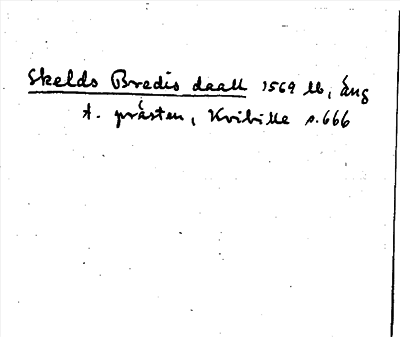 Skelds Bredis daall 1569 lb, äng
t. prästen, Kvibille s.666